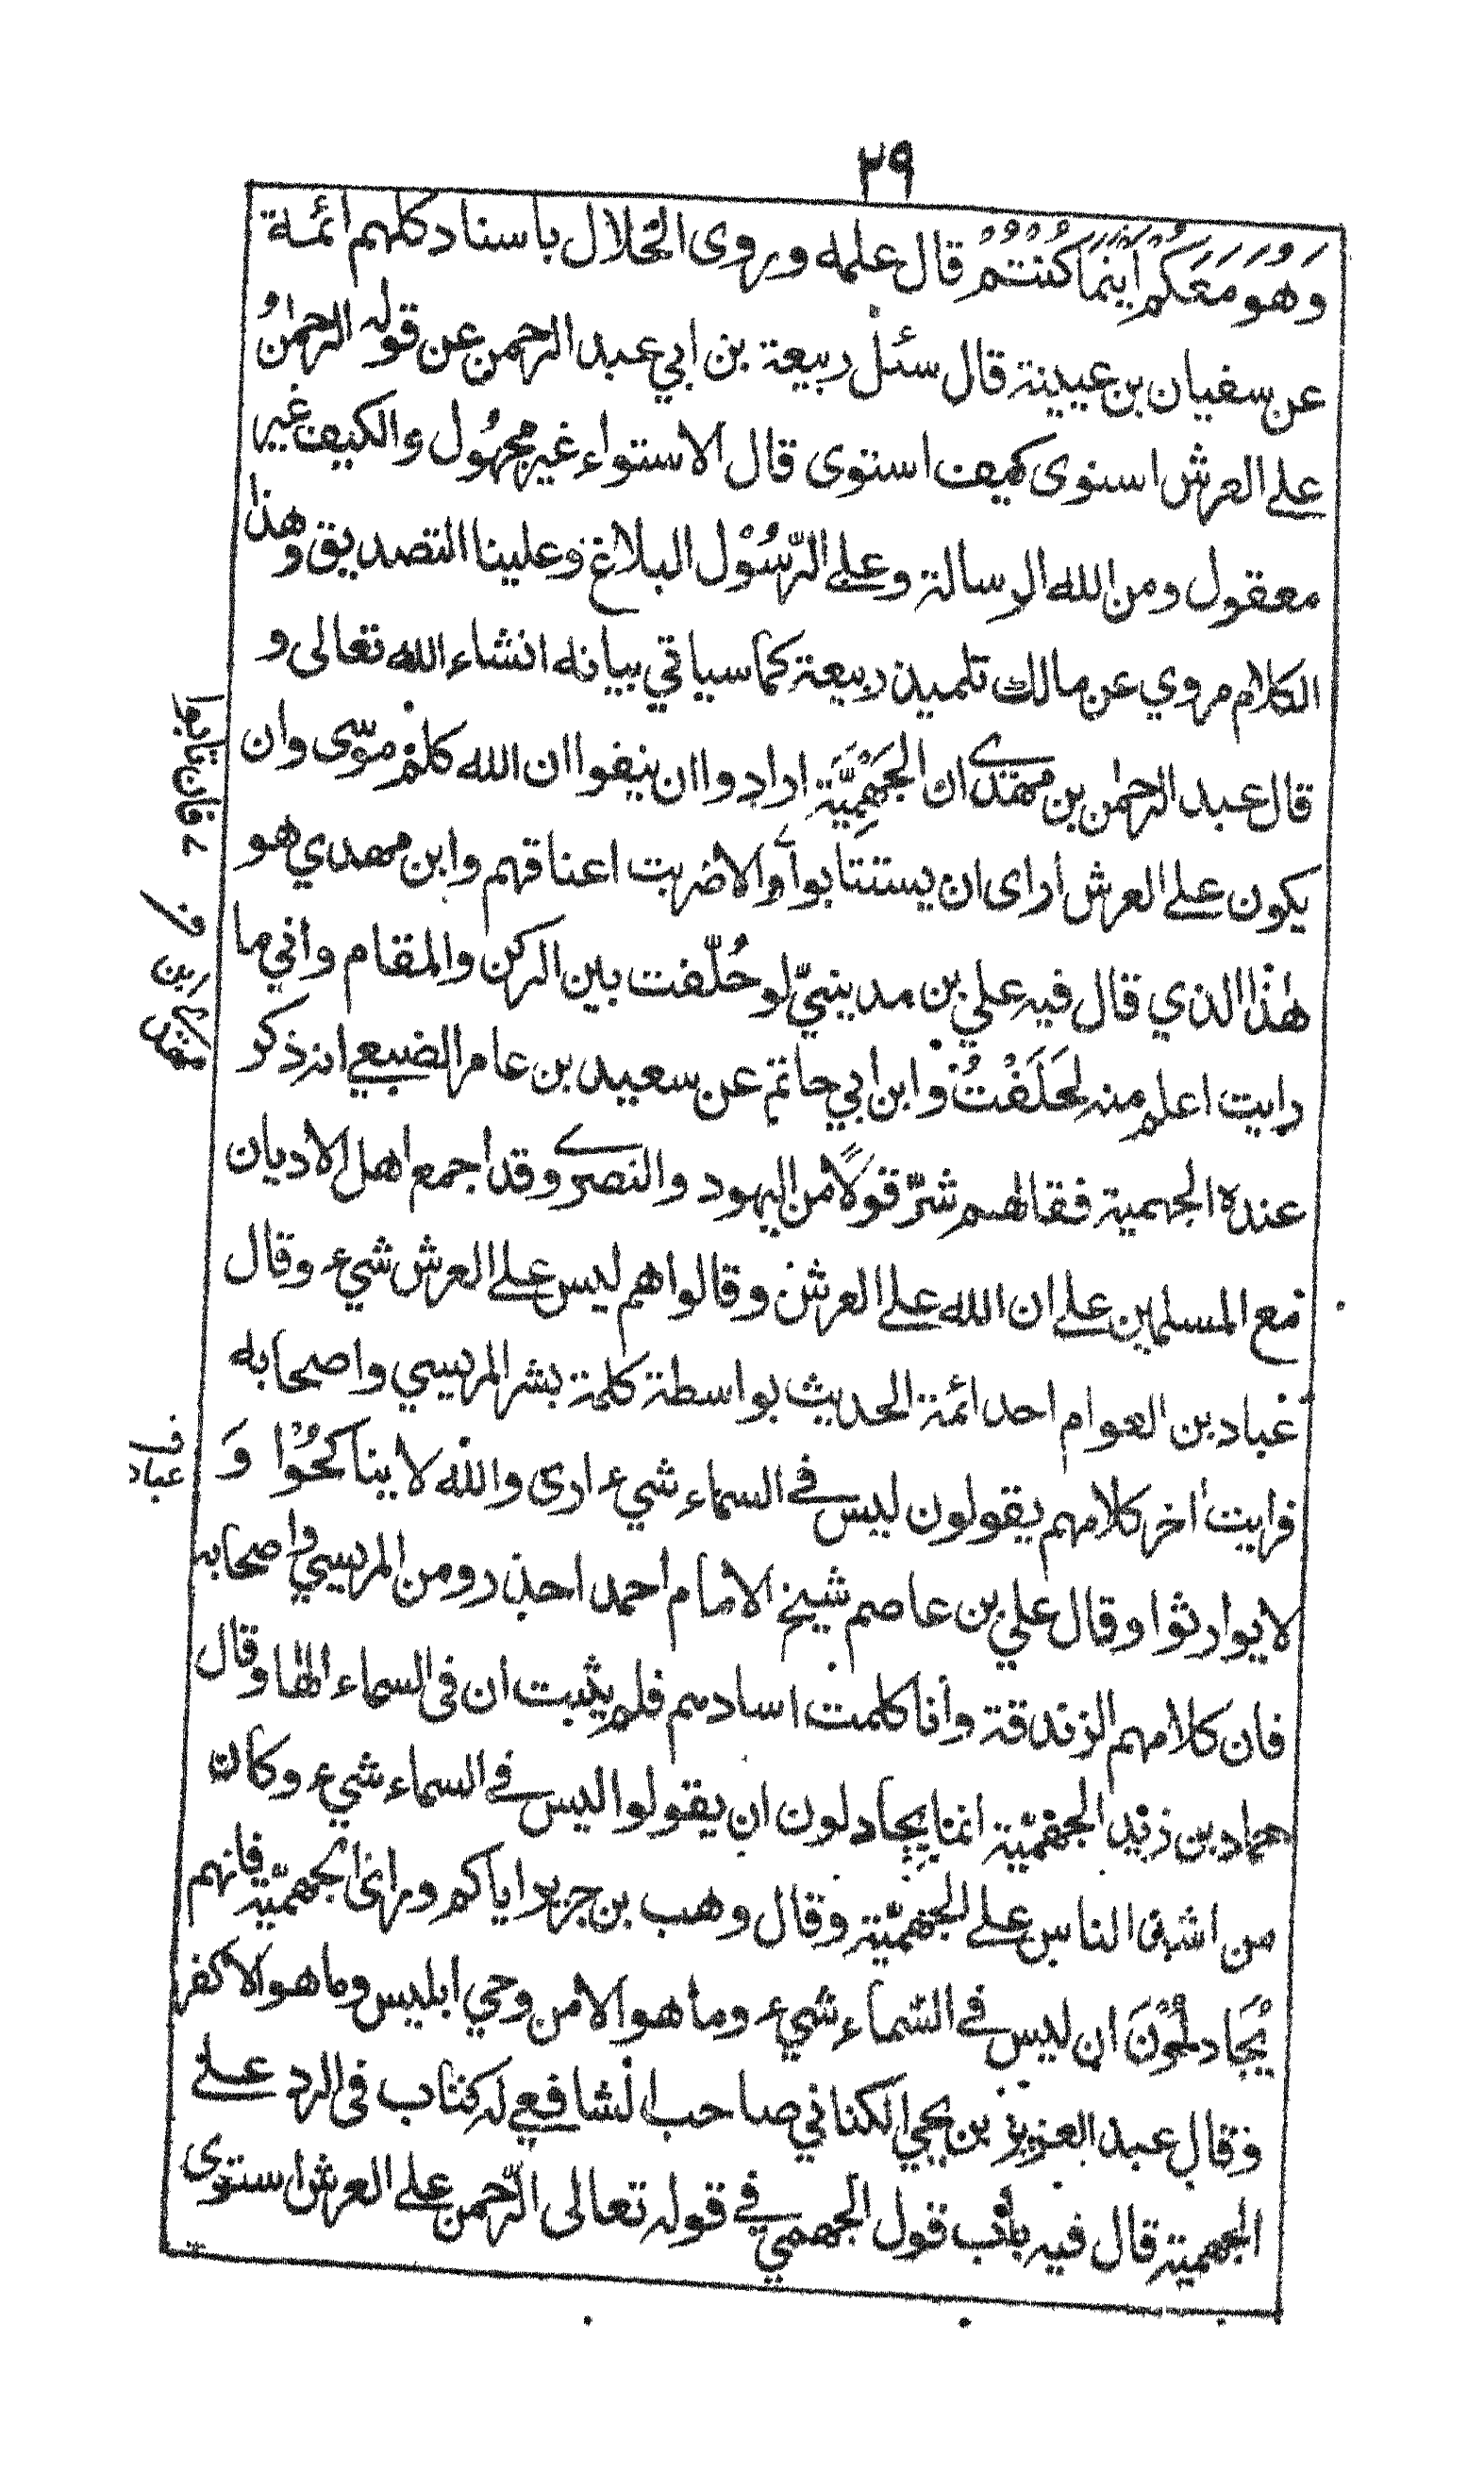 ٢٩
وَهُوَ مَعَكُمْ أَيْنَمَا كُنْتُمْ قال علمه وروى الخلال باسناد كلهم ائمة
عن سفيان بن عيينة قال سئل ربيعة بن ابي عبد الرحمن عن قوله الرحمٰنُ
على العرش استوى كيف استوى قال الاستواء غير مجهُول والكيف غير
معقول ومن الله الرسالة وعلى الرّسُوْل البلاغ وعلينا التصديق وهذا
الكلام مروي عن مالك تلميذ ربيعة كما سياتي بيانه انشاء الله تعالى و
قال عبد الرحمٰن بن مهدي ان الجَهْمِيَّة ارادوا ان ينفوا ان الله كلم موسى وان
يكون على العرش ارای ان يستتابوا والا ضربت اعناقهم وابن مهدي هو
هٰذا الذي قال فيه علي بن مدينيّ لو حُلّفت بين الركن والمقام واني ما
رايت اعلم منه لَحَلَفْتُ وابن ابي حاتم عن سعيد بن عامر الضبعي انه ذكر
عنده الجهمية فقال هم شرّ قولًا من اليهود والنصرى وقد اجمع اهل الاديان
مع المسلمين على ان الله على العرش وقالوا هم ليس على العرش شيء وقال
عباد بن العوام احد ائمة الحديث بواسطة كلمة بشر المريسي واصحابه
فرايت اخر كلامهم يقولون ليس في السماء شيء ارى والله لا يناكحُوْا وَ
لا يوارثوا وقال علي بن عاصم شيخ الامام احمد احذروا من المريسي واصحابه
فان كلامهم الزندقة وأنا كلمت استادهم فلم يثبت ان في السماء الها وقال
حماد بن زيد الجهميّة انما يجادلون ان يقولوا ليس في السماء شيء وكان
من اشد الناس على الجهميّة وقال وهب بن جرير اياكم ورای الجهميّة فانهم
يُجَادلُوْنَ ان ليس في السّماء شيء وما هو الا من وحي ابليس وما هو الا كفر
وقال عبد العزيز بن يحيى الكناني صاحب الشافعي له كتاب في الرد على
الجهمية قال فيه باب قول الجهمي في قوله تعالى الرّحمن على العرش استوى
فان تابوا
ف
عباد